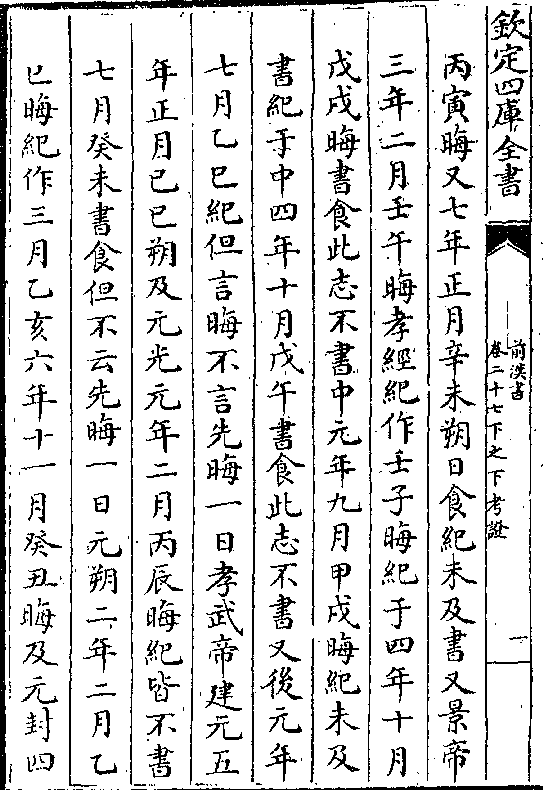 欽定四庫全書
前漢書
卷二十七下之下考證
一
丙寅晦又七年正月辛未朔日食紀未及書又景帝
三年二月壬午晦孝經紀作壬子晦紀于四年十月
戊戌晦書食此志不書中元年九月甲戌晦紀未及
書紀于中四年十月戊午書食此志不書又後元年
七月乙巳紀但言晦不言先晦一日孝武帝建元五
年正月己巳朔及元光元年二月丙辰晦紀皆不書
七月癸未書食但不云先晦一日元朔二年二月乙
巳晦紀作三月乙亥六年十一月癸丑晦及元封四